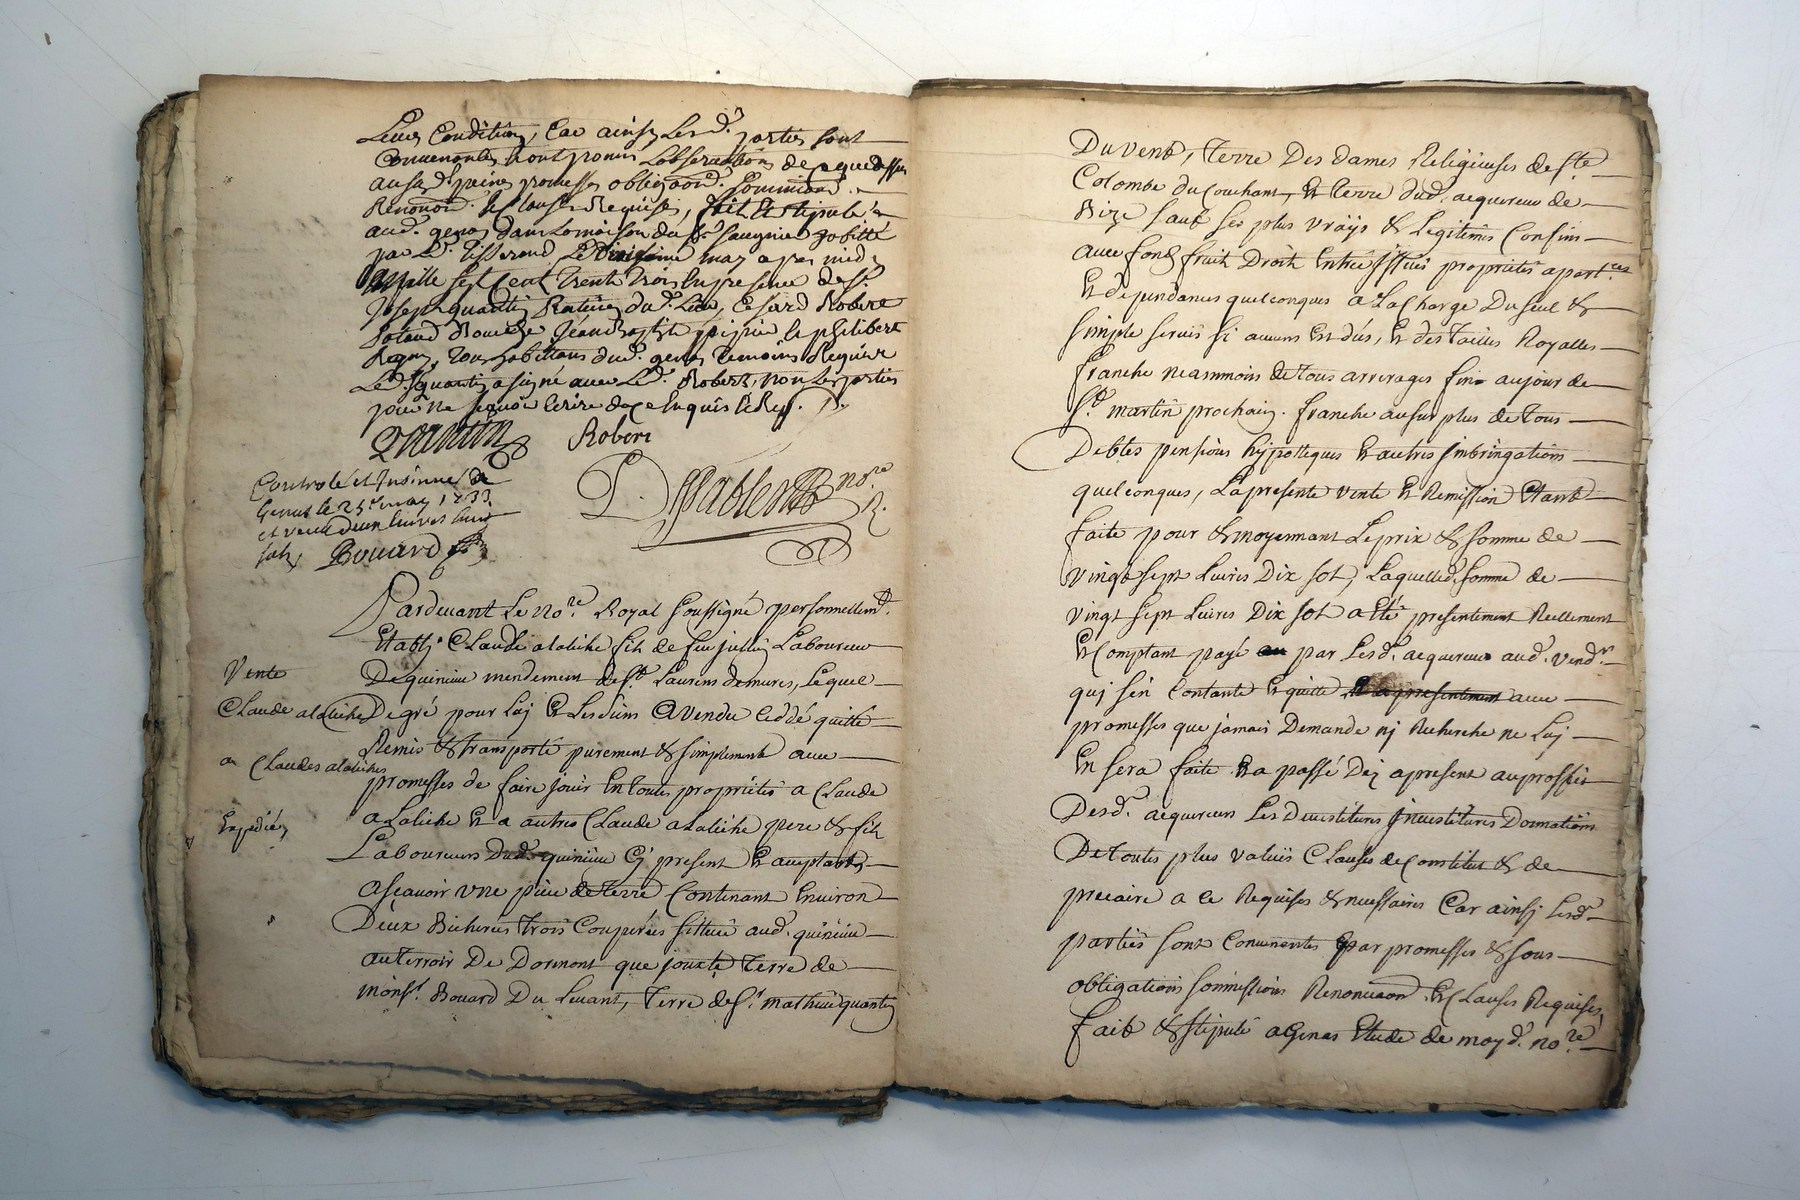 Leurs Conditions, Car ainsy Lesd. parties sont
Convenantes & ont promis L'observation de ce que dessus
aux peines promesses obligaond. soumissiond.
Renonond. & Clauses Requises, fait et stipulé
aud. genas dans la maison du Sr. saugnier habitté
par Led. Tisserand, Le may apres midy
Mille sept Cent trente trois En presence de Sr.
Joseph quantin Dud. Lieu, Cesard Robert
Jean Baptiste & philibert
tous habittans dud. genas temoins Requis
Led. Sr. quantin a signé avec Led. Robert, non Les parties
pour ne sçavoir Ecrire de ce Enquis & Req.
Quantin Robert
Controlé et Insinué à
Genas le 25e. may 1733.
et receu deux livres huit
sols Bouard
Dessablettz no.re R.
Pardevant Le No.re Royal soussigné personnellem.t
Etably Claude alatiche fils de feu jullin Laboureur
De quinieu mendement de St. Laurens demures, Lequel
Vente
De gré pour Luj & Les siens A Vendu Ceddé quitté
Claude alatiche
Remis & transporté purement & simplement avec
a Claudes alatiches
promesses de faire jouir En toutes proprietés a Claude
alatiche Et a autre Claude alatiche pere & fils
Expedié
Laboureurs Dud. quinieu Cj present & acceptants
Asçavoir une piece de terre Contenant Environ
Deux Bicherées trois Couperées sittuée aud. quinieu
au terroir De Dormont que jouxte terre de
Monsr. Bouard Du Levant, Terre de Sr. mathieu quantin
Du Vent, Terre Des dames Religieuses de Ste.
Colombe du Couchant, Et terre dud. acquereur de
Bize sauf ses plus vrays & Legitimes Confins
avec fonds fruits Droits Entrées Issues proprietés apart.ces
Et dependances quelconques a La Charge Du seul &
simple servis si aucuns Est dus, & des Tailles Royalles
franche neammoins de tous arrerages fins au jour de
St. martin prochain. franche au surplus de tous
Debtes pensions hypotteques & autres Imbringations
quelconques, La presente vente & Remission Etant
faite pour & moyennant Le prix & somme de
Vingt sept Livres Dix sol, Laquelle d. somme de
Vingt sept Livres Dix sol a Eté presentement Reellement
Et Comptant payé par Lesd. acquereurs aud. vendr.
quj s'en Contante & quitte avec
promesses que jamais Demande nj Recherche ne Luj
En sera faite Et a passé Dez apresent au proffit
Desd. acquereurs Les Devestitures Investitures Donnations
De toutes plus values Clauses de Constitut & de
precaire a ce Requises & necessaires Car ainsj Lesd.
parties sont Convenantes & par promesses & sous
obligations sommissions Renonciaond. & Clauses Requises
fait & stipulé a Genas Etude de moy d. no.re